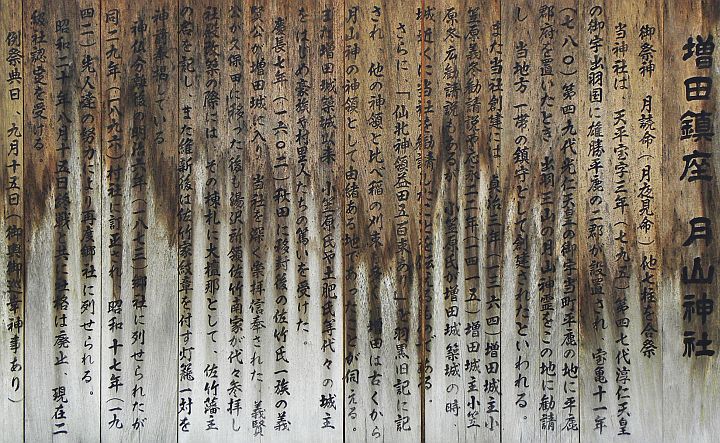 増田鎮座 月山神社
御祭神 月読命(月夜見命)他七柱を合祭
当神社は 天平宝字三年(七九五)第四七代淳仁天皇
の御宇出羽国に雄勝平鹿の二郡が設置され 宝亀十一年
(七八〇)第四九代光仁天皇の御宇当町平鹿の地に平鹿
郡府を置いたとき、出羽三山の月山神霊をこの地に勧請
し 当地方一帯の鎮守として創建されたといわれる。
また当社創建には 貞治三年(一三六四)増田城主小
笠原義冬勧請説や応永二一年(一四一五)増田城主小笠
原冬広勧請説もあるが 小笠原氏が増田城築城の時、
城近くに当社を勧請したことを伝えるものである。
さらに「仙北神領益田五百束あり」と羽黒旧記に記
され 他の神領と比べ稲の刈束 増田は古くから
月山神の神領として由緒ある地であったことが伺える。
また増田城築城以来 小笠原氏や土肥氏年代々の城主
をはじめ豪族や村里人たちの篤いを受けた。
慶長七年(一六〇二)秋田に移封後の佐竹氏一族の義
賢公が増田城に入り 当社を深く崇拝信奉された 義賢
公が久保田に移った後も湯沢所領佐竹南家が代々参拝し
社殿改築の際には その棟札に大檀那として、佐竹藩主
の名を記し また維新後は佐竹家紋章を付す灯籠一対を
神前に奉献している
神仏分離後の明治六年(一八七三)郷社に列せられたが
同二九年(一八九六)村社に訂正され 昭和十七年(一九
四二)先人達の努力により再度郷社に列せられる。
昭和二十年八月十五日終戦と共に社格は廃止、現在二
級社認定を受ける。
例祭典日、九月十五日(御輿御巡幸神事あり)